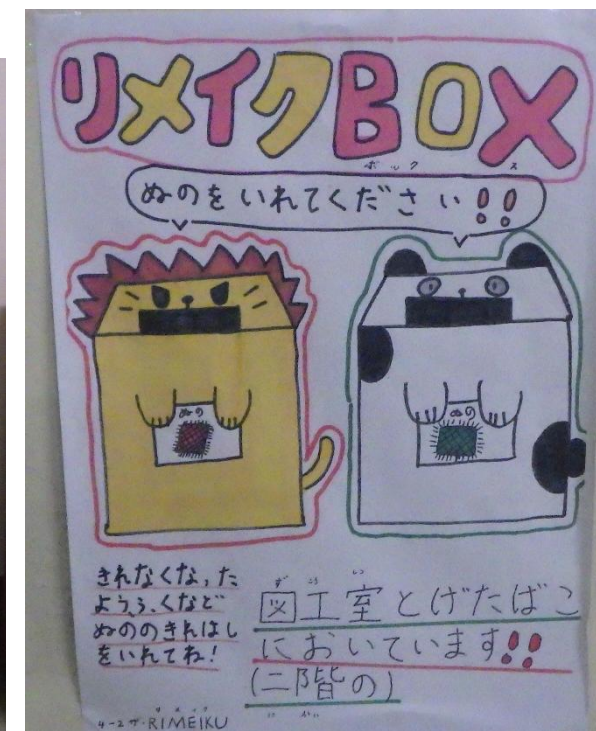 リメイクBOX
ボックス
ぬのをいれてください!!
ぬの
ぬの
きれなくなった
ようふくなど
ぬののきれはし
をいれてね!
図工室とげたばこ
においています!!
(二階の)
4-2 ザ・RIMEIKU